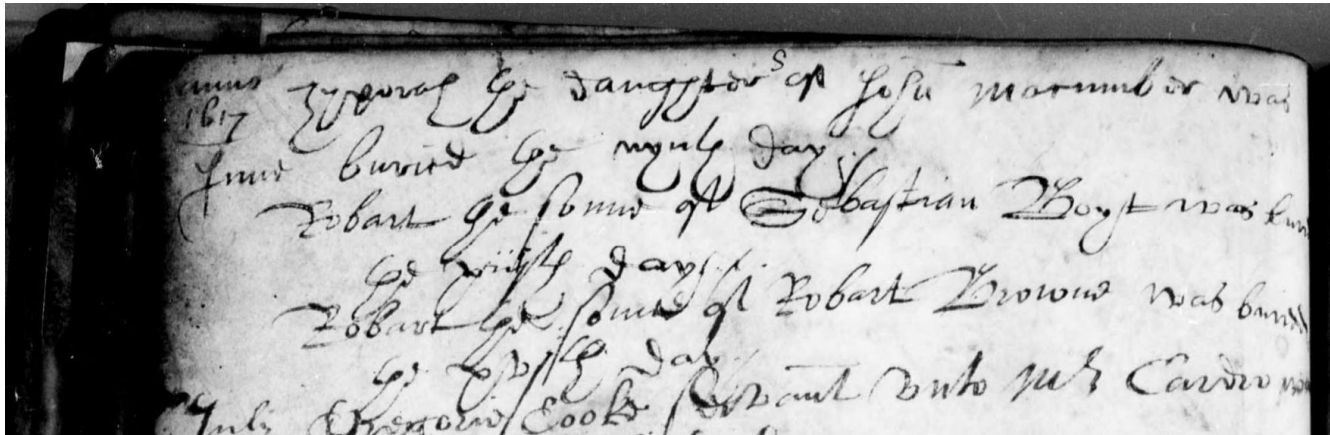 anno Zyporah the daughters of John Macumber was
1617
June buried the nynth day
Robart the sonne of Sebastian Boyt was buri
the xiijth day
Robart the sonne of Robart Browne was buried
the xvjth day
July Gregorie Cooke servant unto Mr Carew